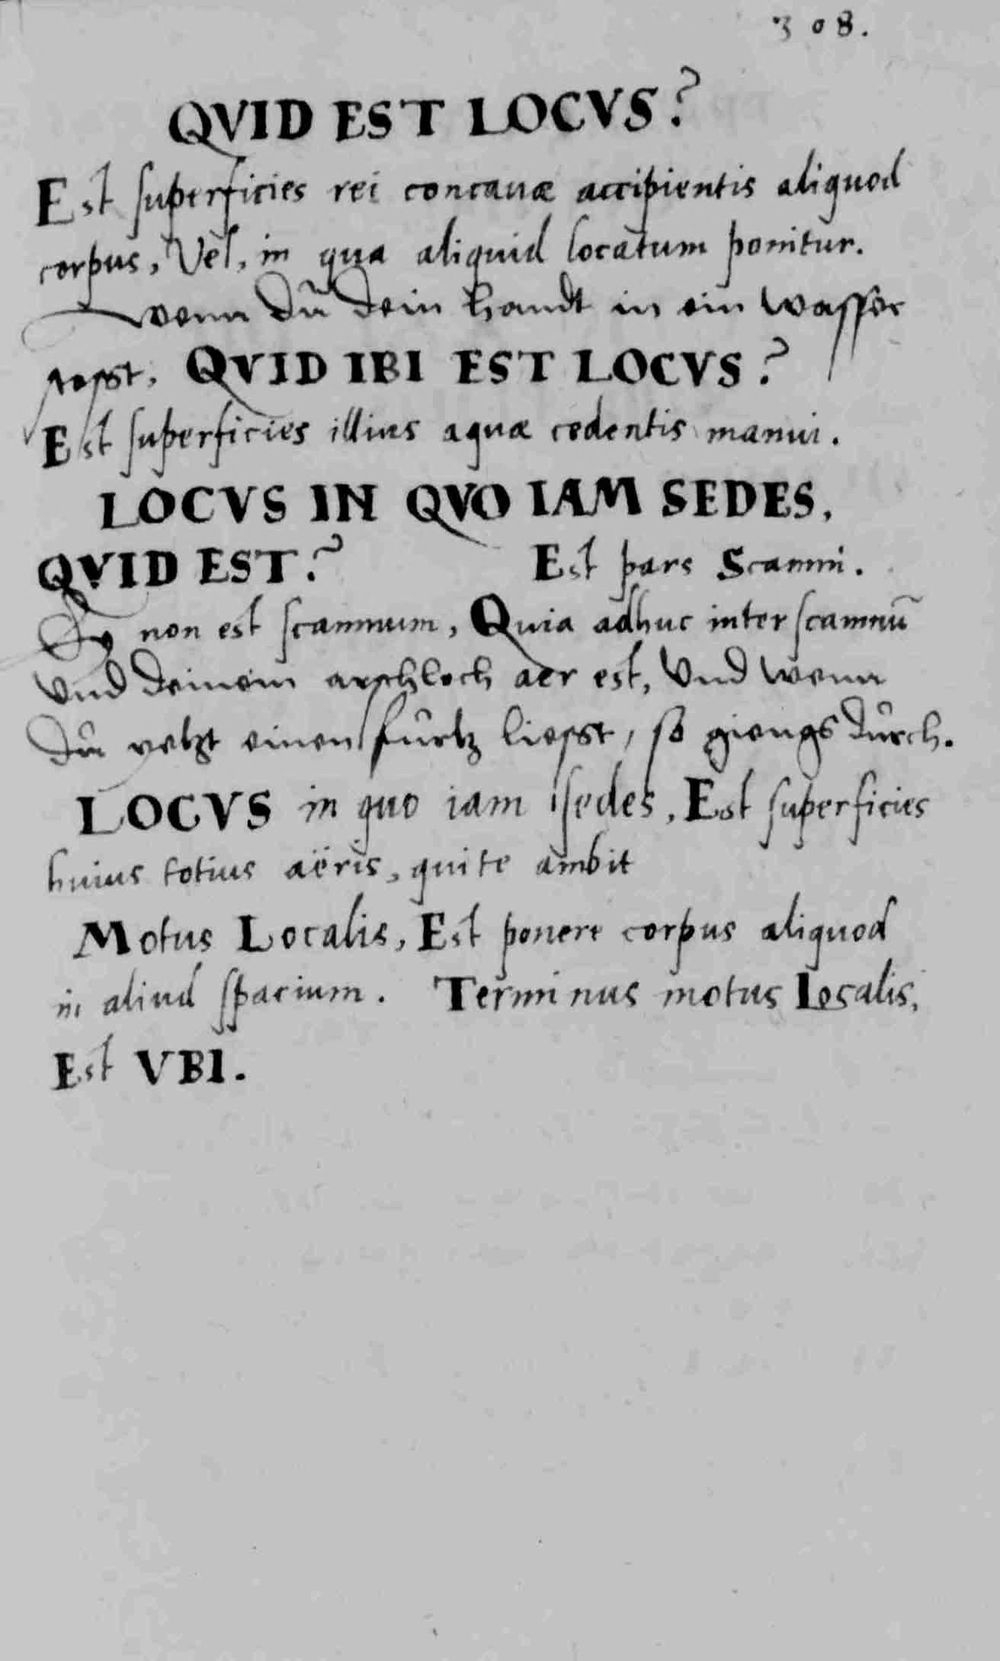 308.
QVID EST LOCVS?
Est superficies rei concauæ accipientis aliquod
corpus, Vel, in qua aliquid locatum ponitur.
wenn du dein handt in ein wasser
stosst, QVID IBI EST LOCVS?
Est superficies illius aquæ cedentis manui.
LOCVS IN QVO IAM SEDES,
QVID EST? Est pars Scamni.
non est scamnum, Quia adhuc inter scamnū
Vnd deinem arschloch aer est, Vnd wenn
du yetzt einen furtz liesst, so giengs durch.
LOCVS in quo iam sedes, Est superficies
huius totius aëris, qui te ambit
Motus Localis, Est ponere corpus aliquod
in aliud spacium. Terminus motus Localis,
Est VBI.